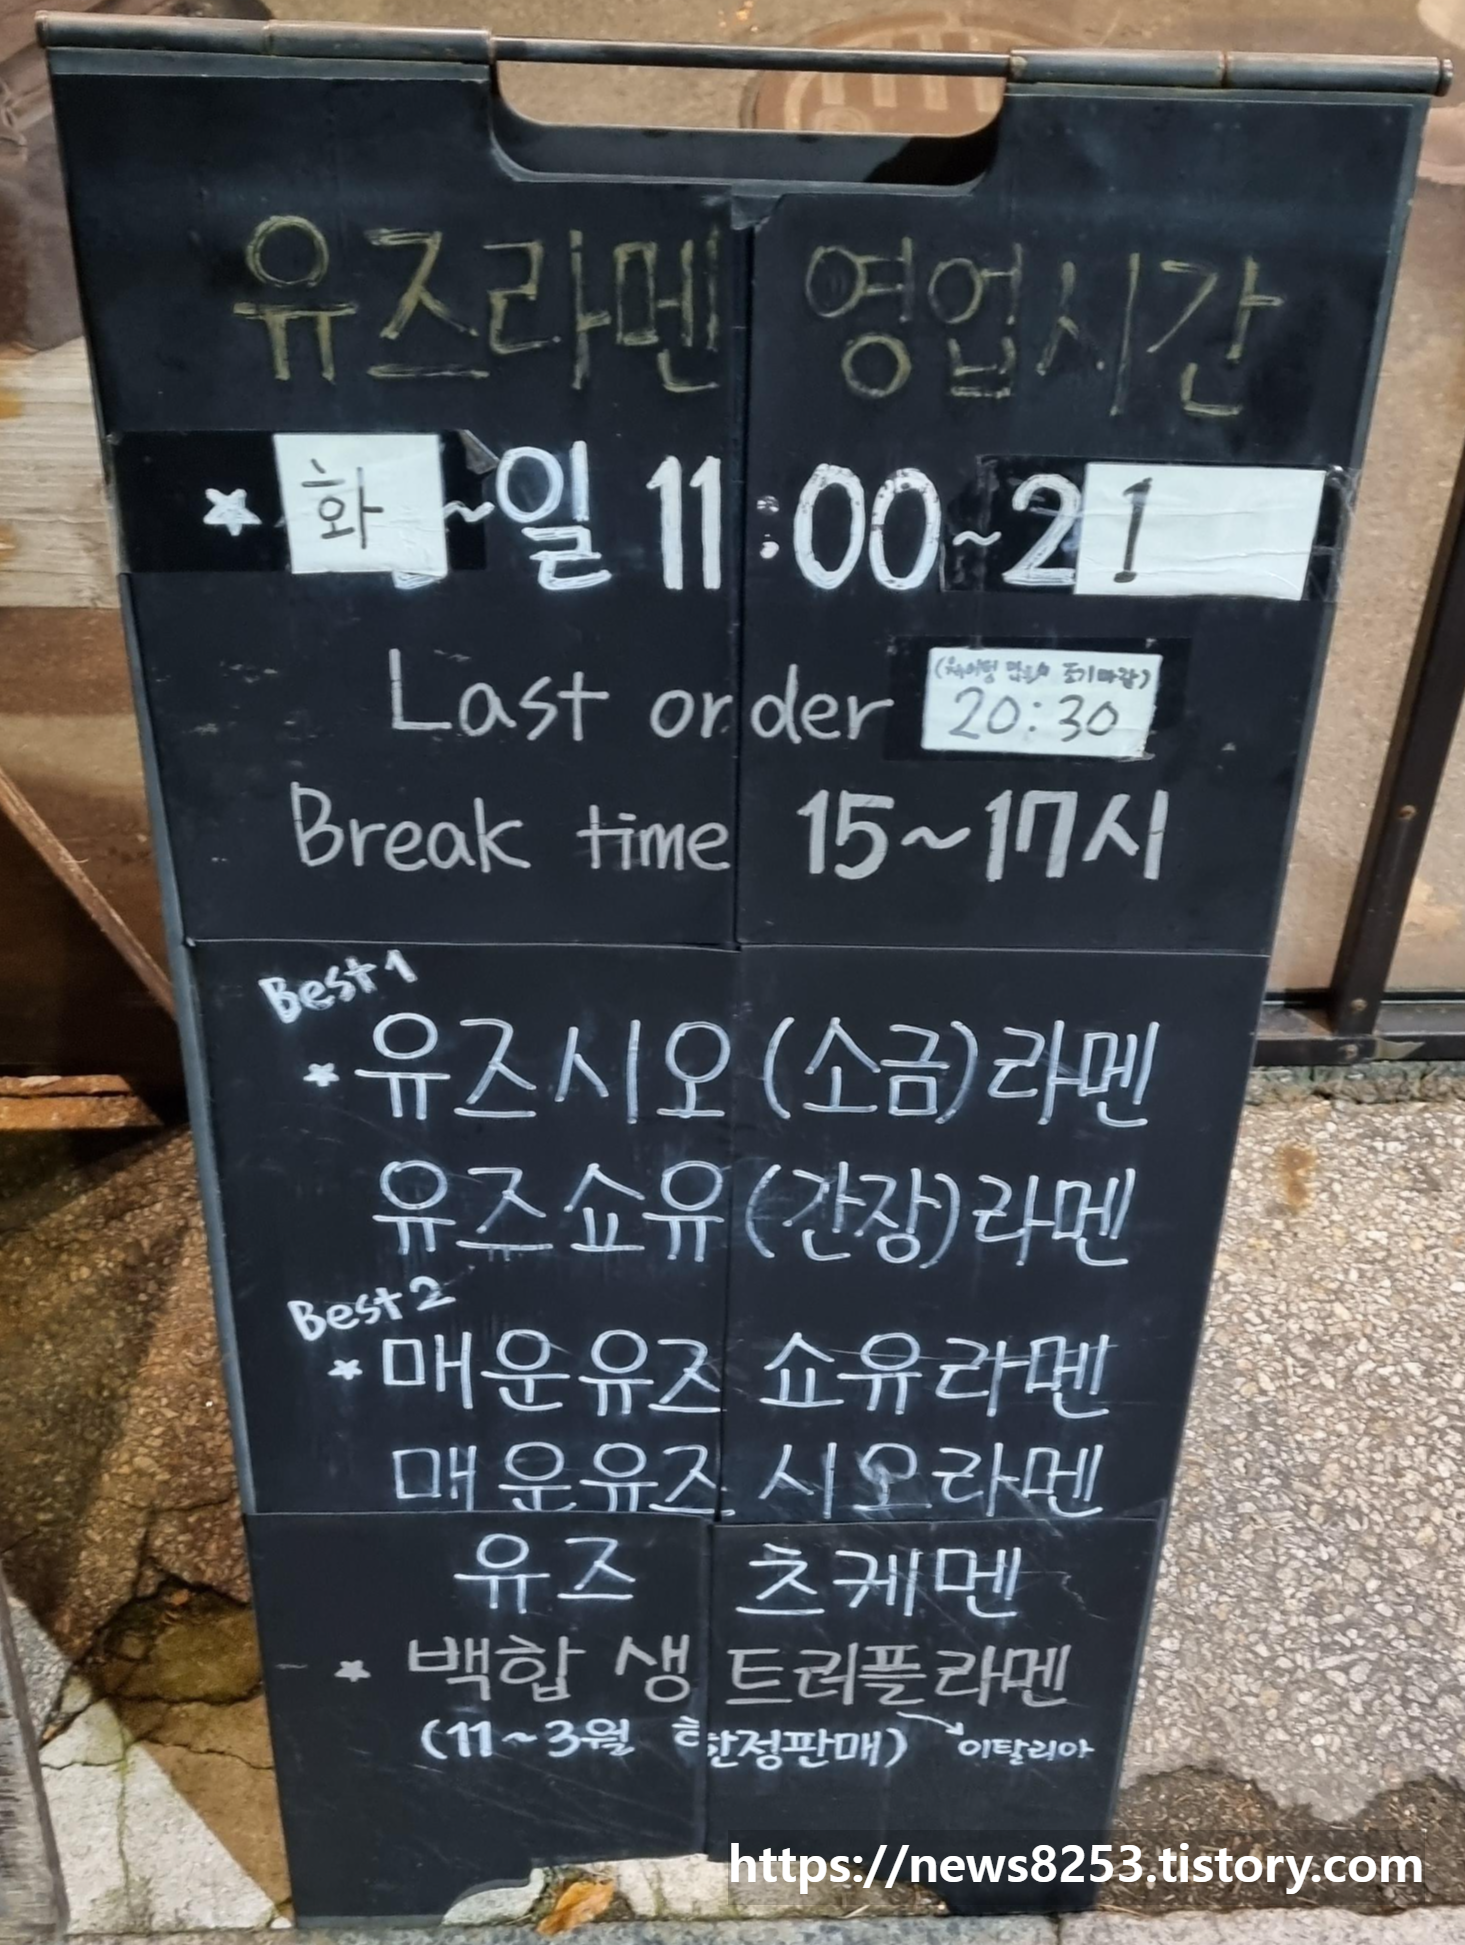 유즈라멘 영업시간
★ 화~일 11:00~21
(웨이팅 많을시 조기마감)
Last order 20:30
Break time 15~17시
Best 1
★ 유즈시오(소금)라멘
유즈쇼유(간장)라멘
Best 2
★ 매운유즈 쇼유라멘
매운유즈 시오라멘
유즈 츠케멘
★ 백합 생 트러플라멘
(11~3월 한정판매) → 이탈리아
https://news8253.tistory.com